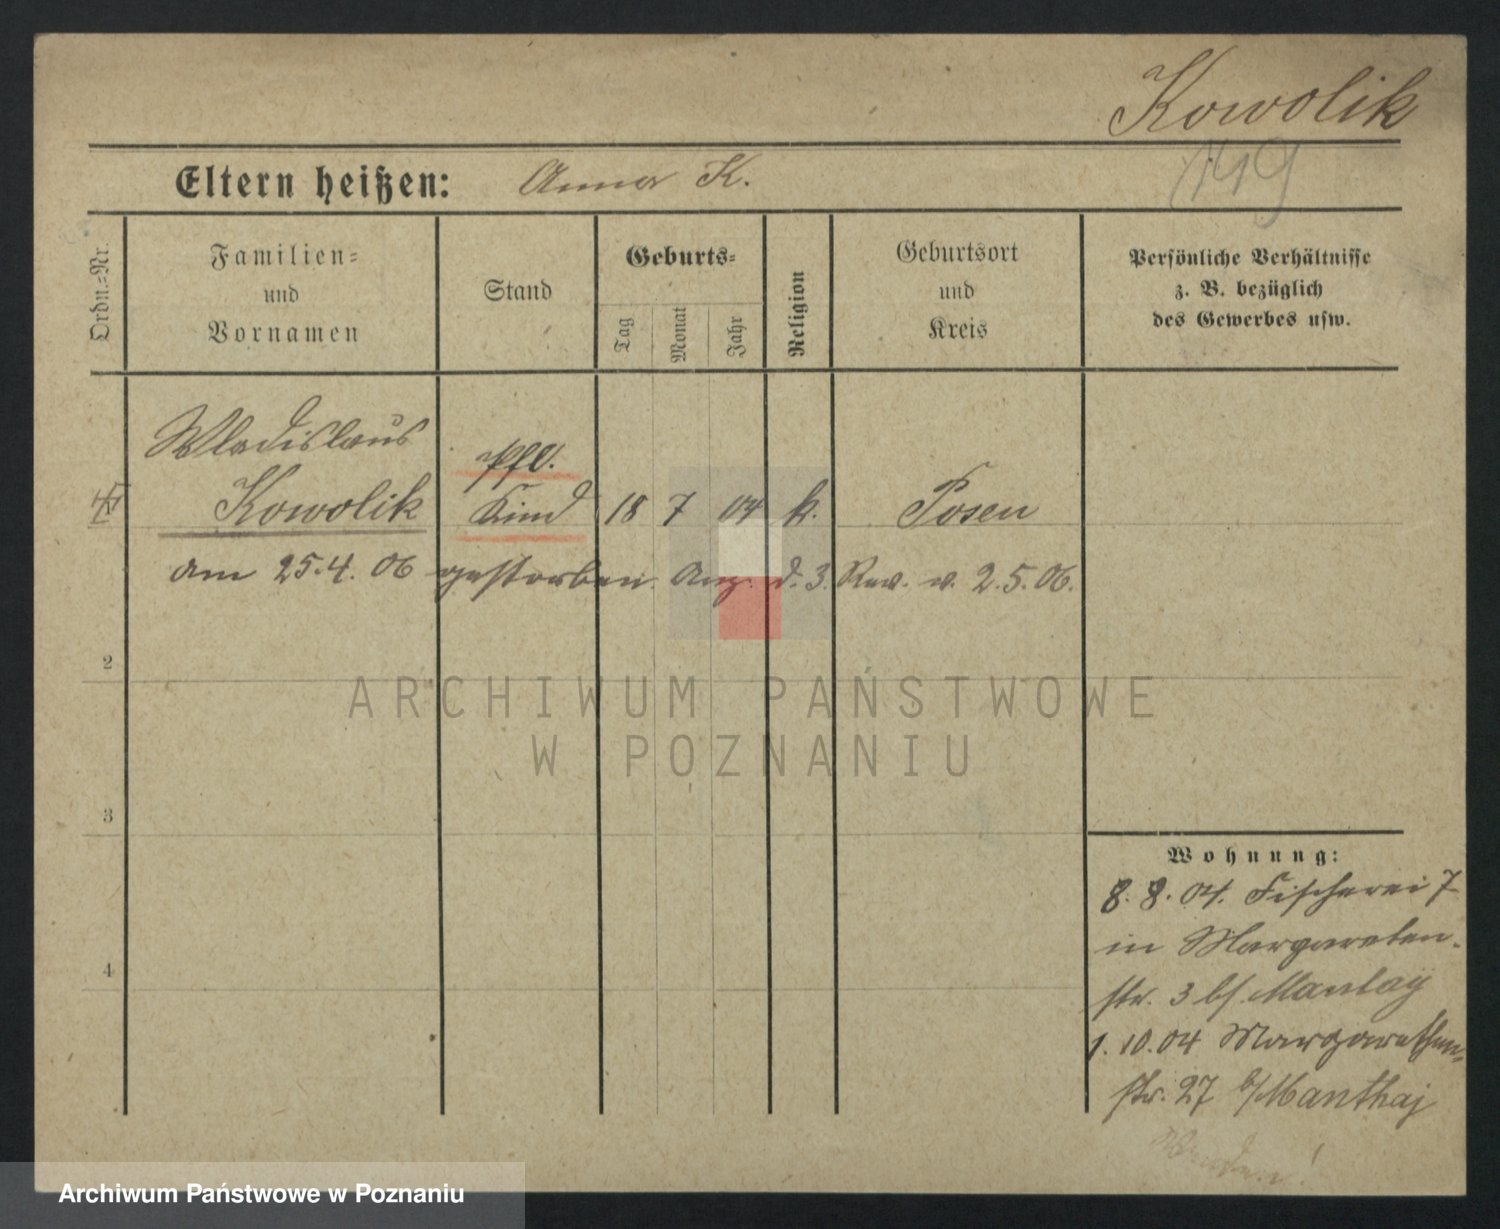 Kowolik
119
Eltern heißen: Anna K.
Ordn.=Nr.
Familien=
und
Vornamen
Stand
Geburts=
Tag
Monat
Jahr
Religion
Geburtsort
und
Kreis
Persönliche Verhältnisse
z. B. bezüglich
des Gewerbes usw.
Wladislaus
Kowolik
Pfl.
Kind
18 7 04 k. Posen
am 25.4.06 gestorben. Anz. d. 3. Rev. v. 2.5.06.
2
3
4
ARCHIWUM PAŃSTWOWE
W POZNANIU
Wohnung:
8.8.04. Fischerei 7
in Margareten-
str. 3 b/ Manlay
1.10.04 Margarethen-
str. 27 b/ Manthaj
Wenden!
Archiwum Państwowe w Poznaniu